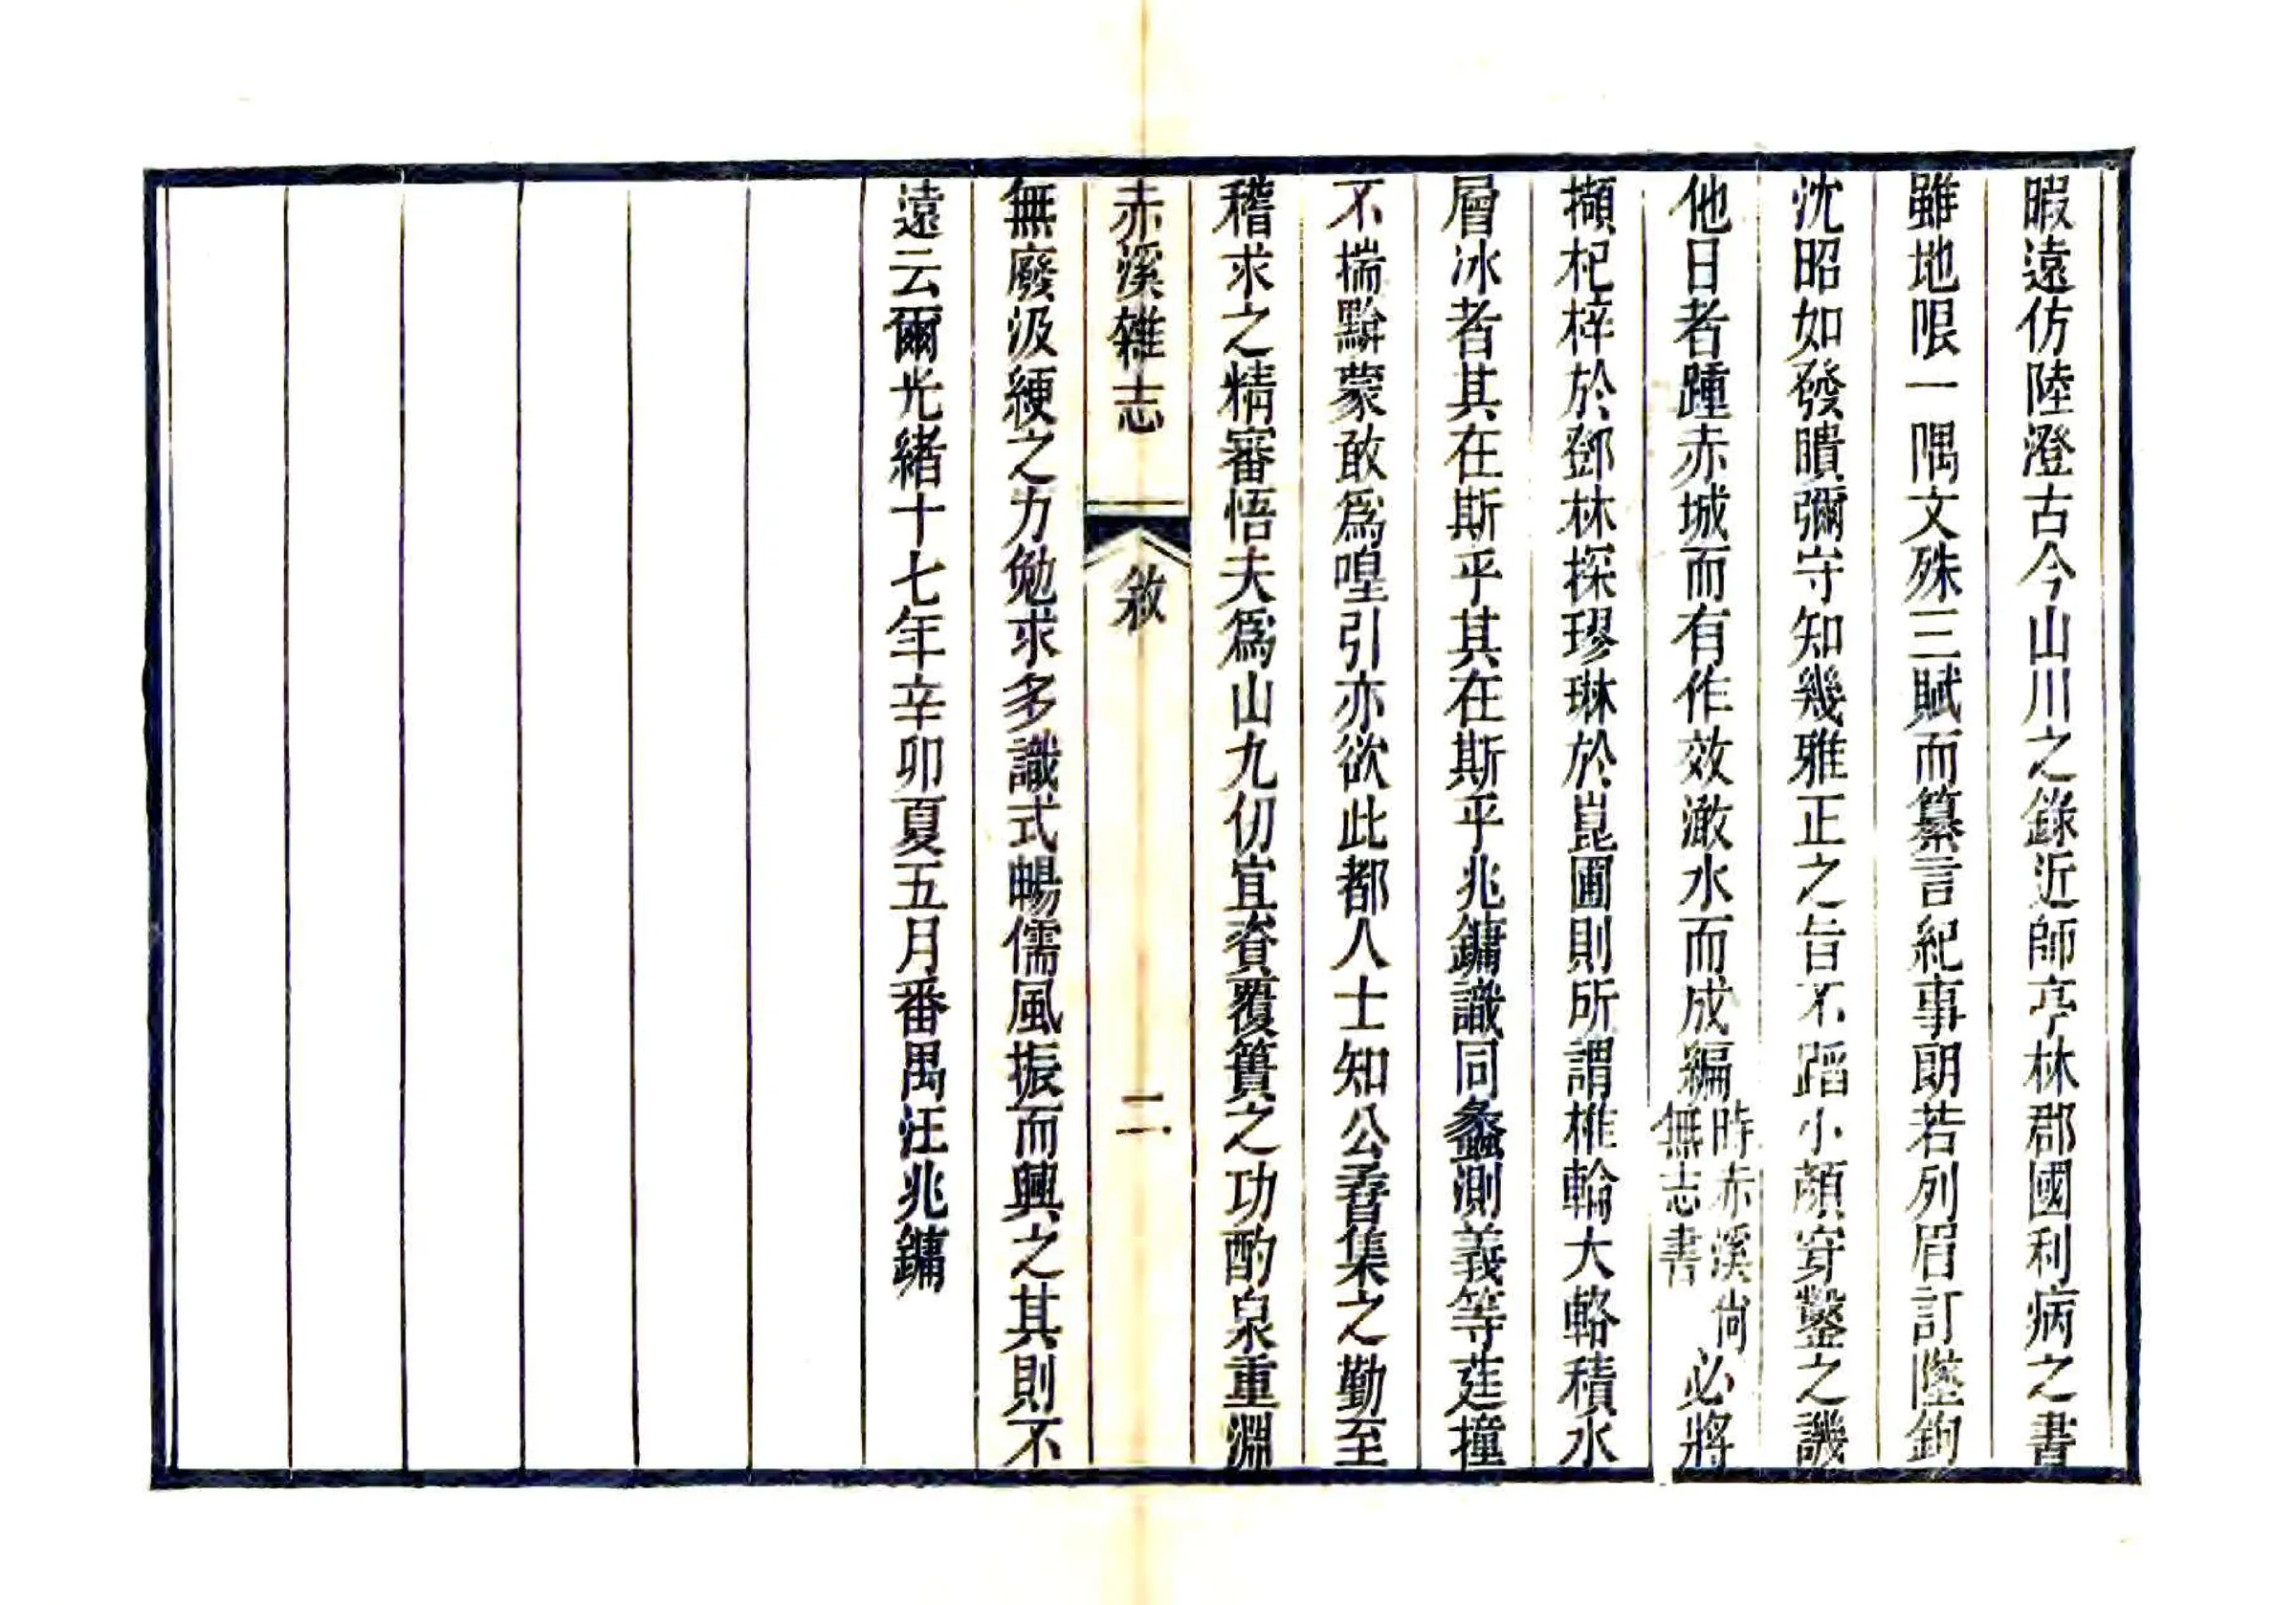 暇遠仿陸澄古今山川之錄近師亭林郡國利病之書
雖地限一隅文殊三賦而纂言紀事朗若列眉訂墜鉤
沈昭如發瞶彌守知幾雅正之旨不蹈小顏穿鑿之譏
他日者踵赤城而有作效澉水而成編時赤溪尚無志書必將
擷杞梓於鄧林探璆琳於崑圃則所謂椎輪大輅積水
層冰者其在斯乎其在斯乎兆鏞識同蠡測義等莛撞
不揣黭蒙敢爲喤引亦欲此都人士知公蒼集之勤至
稽求之精審悟夫爲山九仞宜資覆簣之功酌泉重淵
赤溪雜志 敘 二
無廢汲綆之力勉求多識式暢儒風振而興之其則不
遠云爾光緒十七年辛卯夏五月番禺汪兆鏞